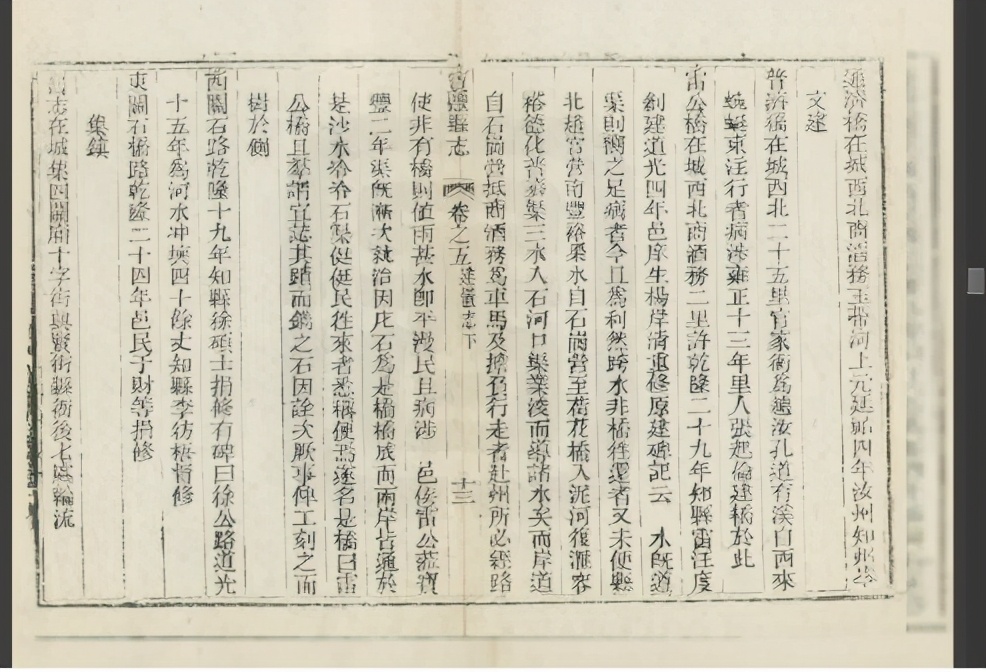 通濟橋在城西北商酒務玉帶河上元延祐四年汝州知州
文建
普濟橋在城西北二十五里官家衝為趨汝孔道有溪自西來
蜿蜒東注行者病涉雍正十三年里人張起倫建橋於此
雷公橋在城西北商酒務二里許乾隆二十九年知縣雷汪度
創建道光四年邑庠生楊岸清重修原建碑記云 水既道
渠則衝之足病者今且為利然跨水非橋往還者又未便縣
北趙官營南豐裕渠水自石崗營至荷花橋入泥河復滙客
裕德化普泰渠三水入石河口渠業浚而導諸水矣而岸道
自石崗營抵商酒務為車馬及擔負行走者赴州所必經路
寶豐縣志 卷之五 建置志下 十三
使非有橋則值雨甚水即平漫民且病涉 邑侯雷公蒞寶
豐二年渠既漸次就治因庀石為是橋橋成而兩岸皆通於
是沙水泠泠石渠俓俓民往來者悉稱便焉遂名是橋曰雷
公橋且羣謂宜誌其蹟而鐫之石因詮次厥事俾工刻之而
樹於側
西關石路乾隆十九年知縣徐 士捐修有碑曰徐公路道光
十五年為河水冲壞四十餘丈知縣李彷梧督修
東關石橋路乾隆二十四年邑民于財等捐修
集鎮
舊志在城集四關廂十字街興賢街縣衙後七處輪流